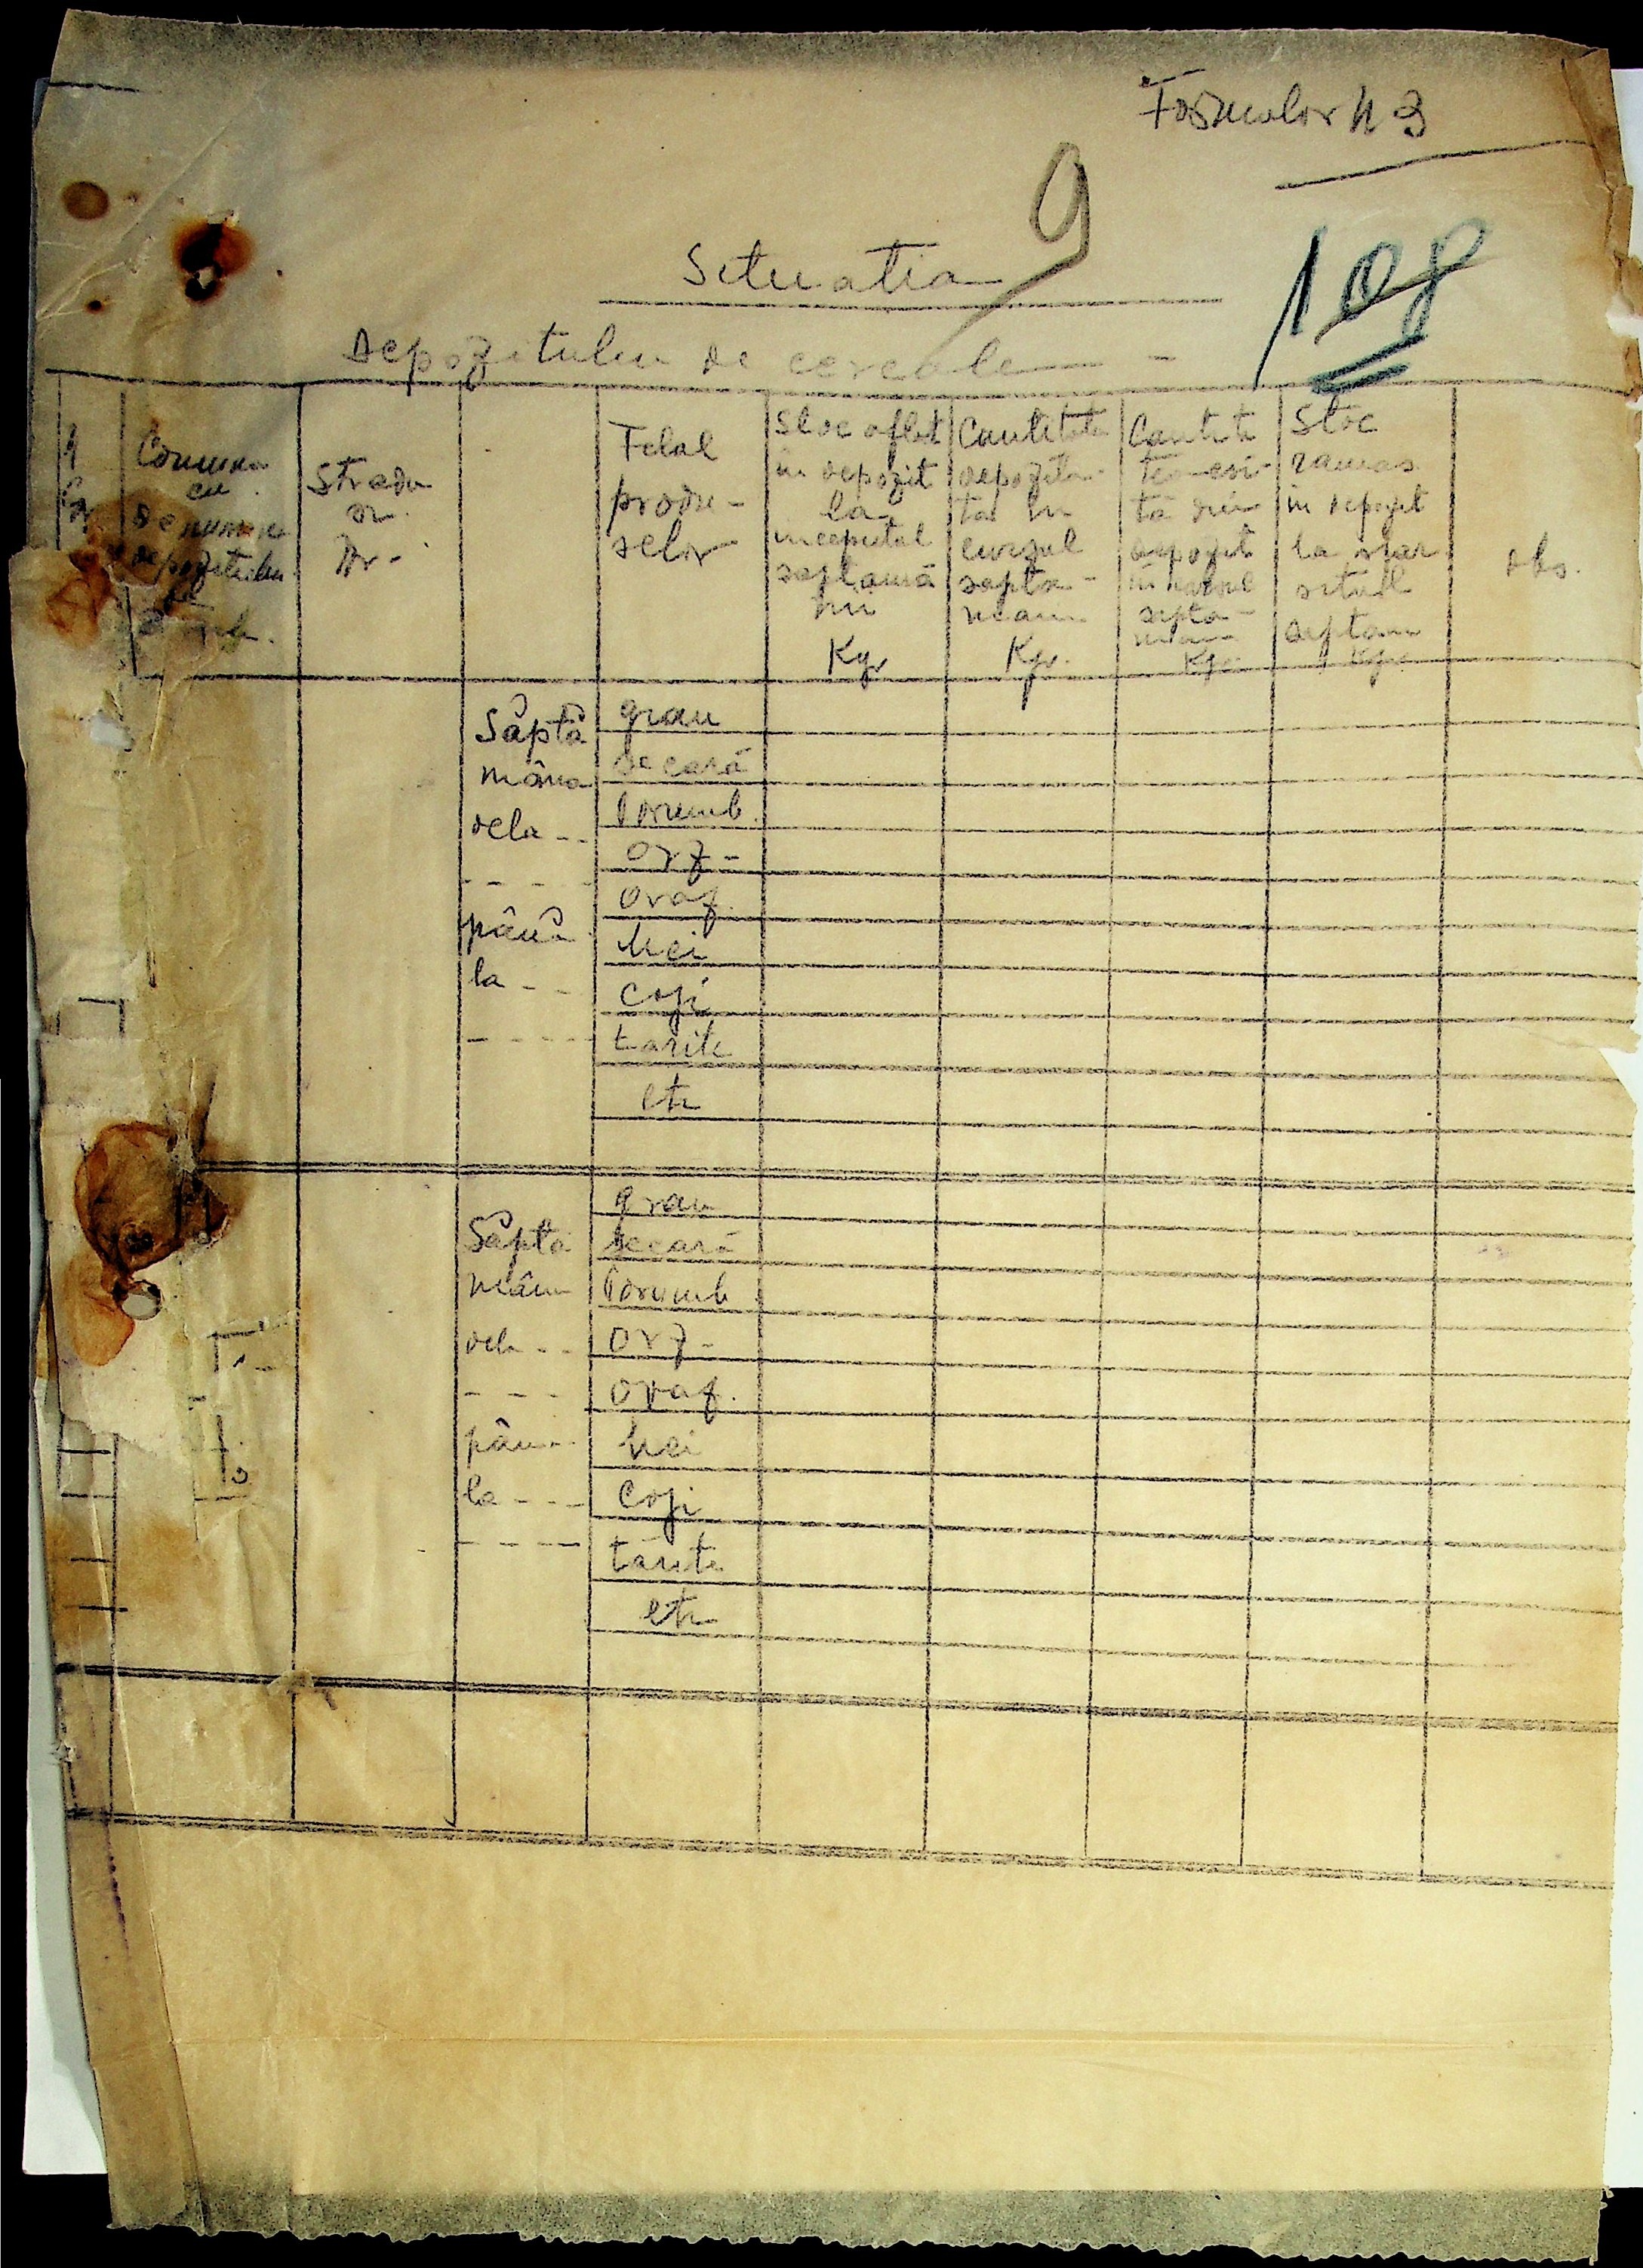 Formular N 3
9
108
Situatia
Depozitului de cereale
Comuna
cu
denumirea
depozitului
Strada
Nr.
Felul
produ-
selor
Stoc aflat
în depozit
la
inceputul
saptamâ
nii
Kgr
Cantitatea
depozita-
ta în
cursul
sapta-
Kgr.
Cantita
tea esi-
tă din
depozit
în cursul
septa-
Kgr
Stoc
ramas
în depozit
la sfar
situl
septam
Kgr
obs.
Săptă
mâna
dela - -
- - -
până
la - -
- - - -
grau
secară
Porumb
orz -
ovaz.
mei
coji
tarite
etc
Săptă
mâna
dela - -
- - -
până
la - - -
- - - -
grau
secară
Porumb
orz -
ovaz.
mei
coji
tărite
etc